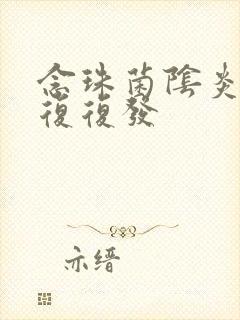 念珠菌陰炎
復復發
亦缙